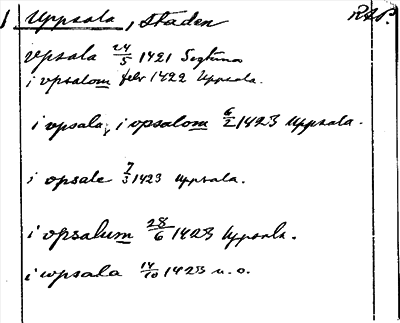 1 Uppsala, staden RAP.
vpsala 24/5 1421 Sigtuna
i vpsalom febr 1422 Uppsala.
i vpsala, i vpsalom 6/2 1423 Uppsala.
i opsale 7/3 1423 Uppsala.
i vpsalum 28/6 1423 Uppsala.
i wpsala 14/10 1423 u. o.